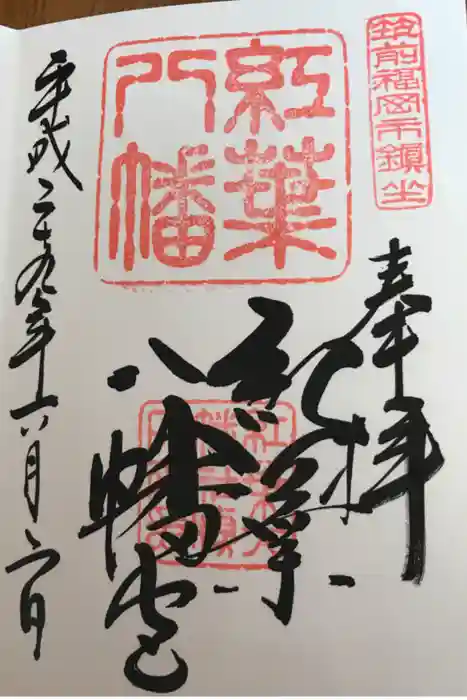 筑前福岡市鎮坐
奉拝
紅葉
八幡
紅葉
八幡宮
平成二十九年六月六日